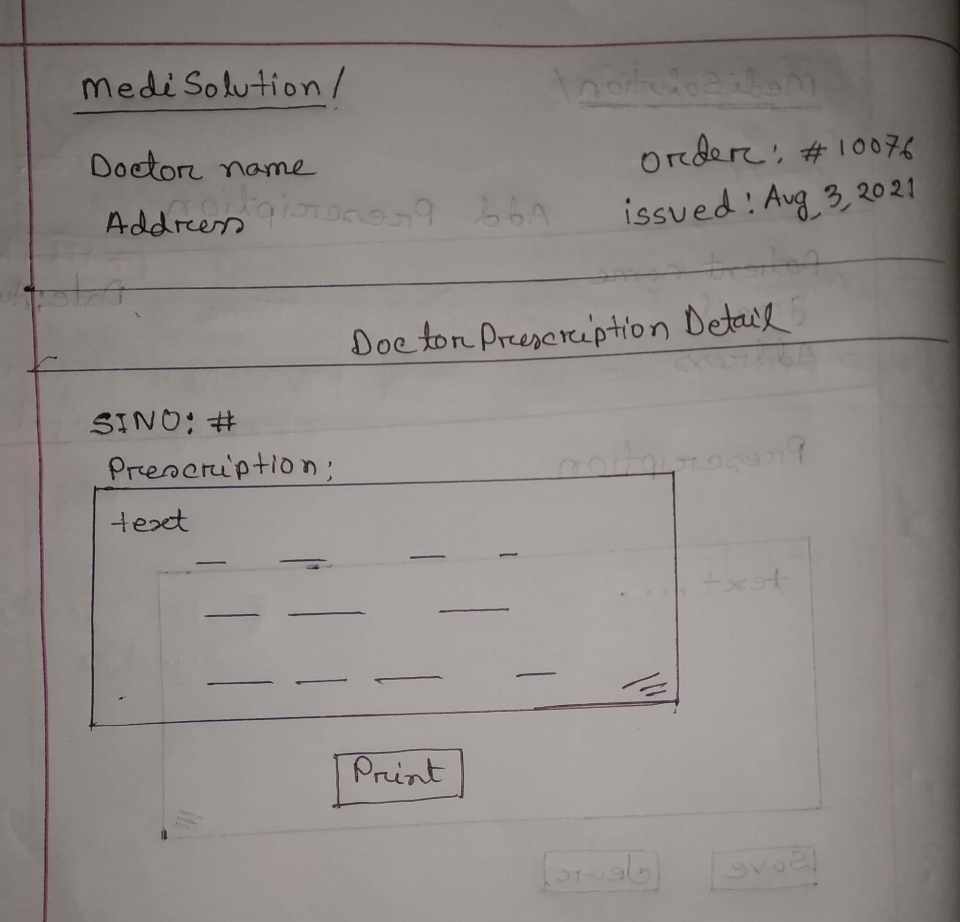 Medi Solution!
Doctor name
Order: #10076
Address
issued: Aug, 3, 2021
Doctor Prescription Detail
SINO: #
Prescription:
text
Print